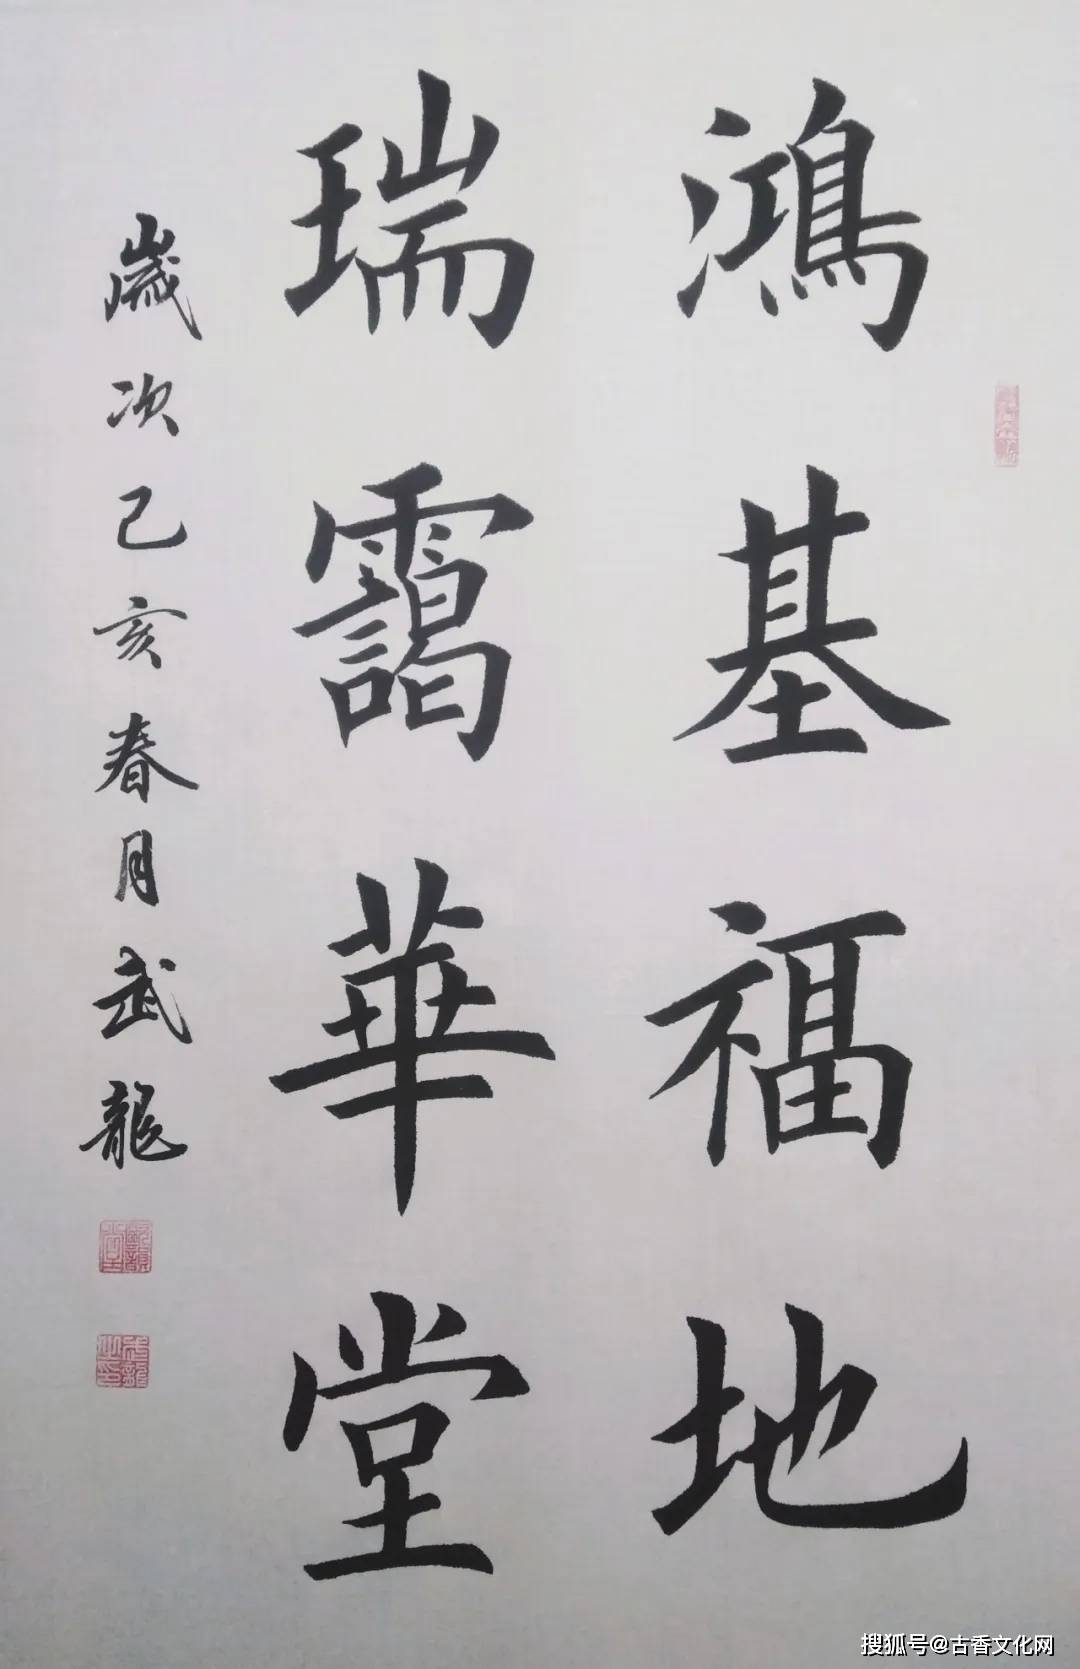 鴻基福地
瑞靄華堂
歲次己亥春月武龍
武龍之印
搜狐号@古香文化网